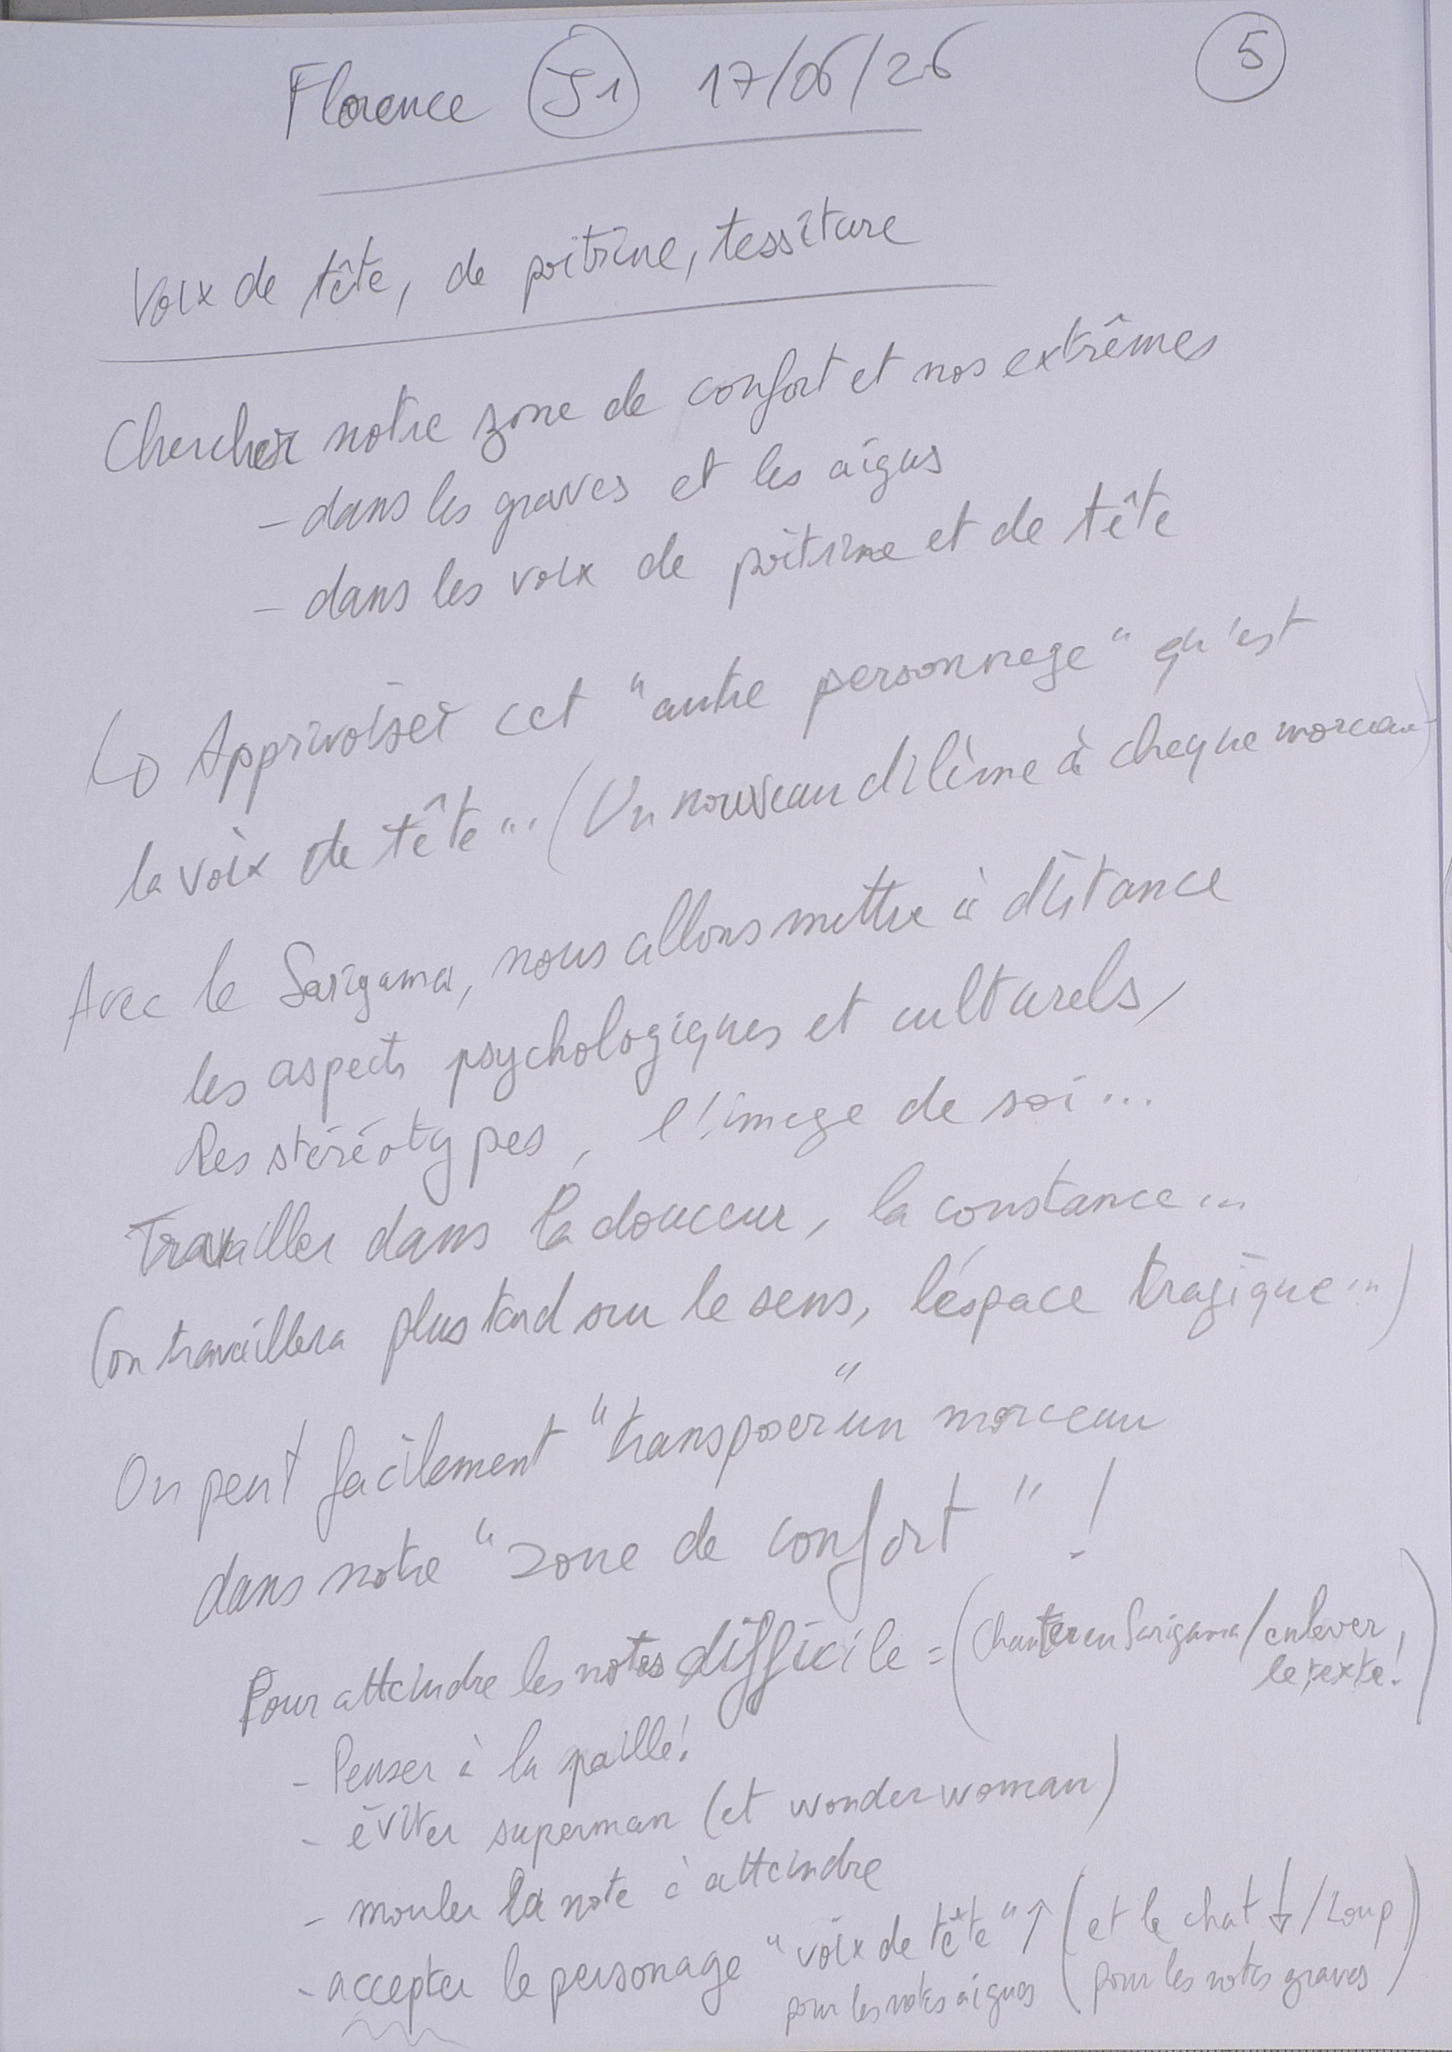 Florence J1 17/06/26 5
Voix de tête, de poitrine, tessiture
Chercher notre zone de confort et nos extrêmes
- dans les graves et les aigus
- dans les voix de poitrine et de tête
↳ Apprivoiser cet "autre personnage" qu'est
la voix de tête... (Un nouveau dilème à chaque morceau)
Avec le Sarigama, nous allons mettre à distance
les aspects psychologiques et culturels,
les stéréotypes, l'image de soi...
Travailler dans la douceur, la constance...
(on travaillera plus tard sur le sens, l'espace tragique...)
On peut facilement "transposer" un morceau
dans notre "zone de confort" !
Pour atteindre les notes difficile = (Chanter en Sarigama / enlever
le texte!)
- Penser à la paille!
- éviter superman (et wonder woman)
- mouler la note à atteindre
- accepter le personage "voix de tête" ↑ (et le chat ↓ / Loup)
pour les notes aigues (pour les notes graves)